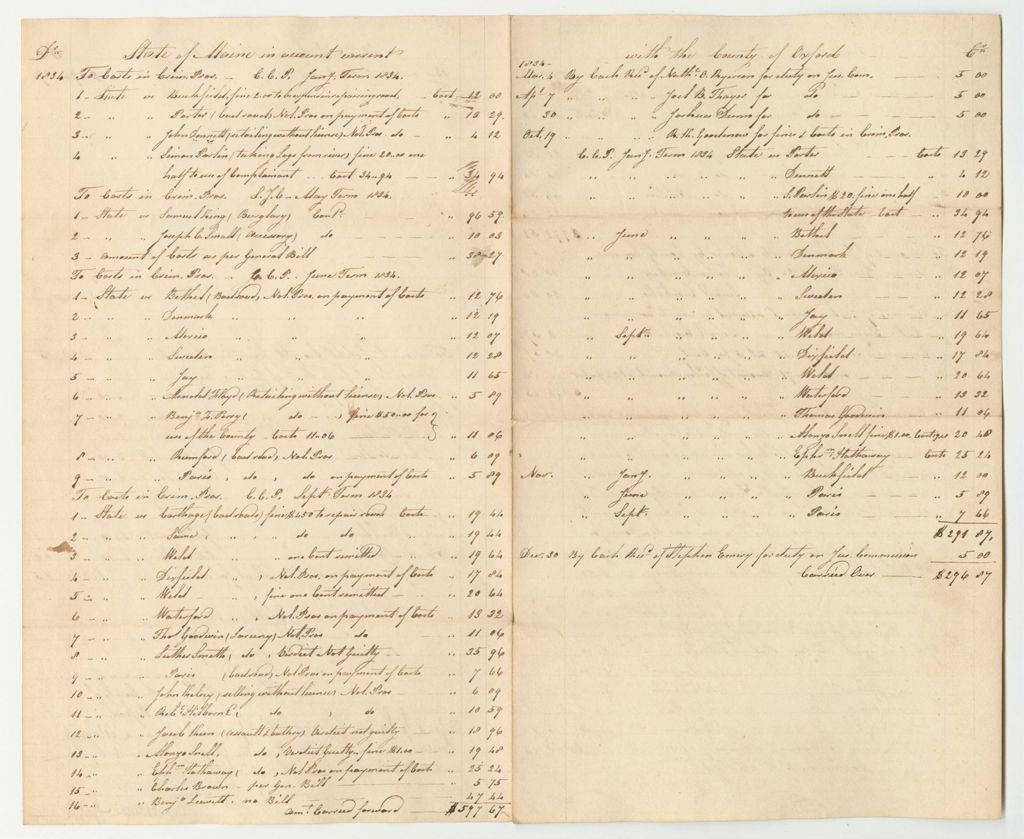 Dr. State of Maine in account current
1834 To Costs in Crim. Pros. - C.C.P. Jany. Term 1834.
1 - State vs Buckfield, fine 2.00 to be expended in repairing road, - Cost - 12 00
2 - " " Porter (bad road) Nol. Pros on payment of Costs " 13 29.
3 - " " John Dennett (retailing without license) Nol. Pros do - " 4 12
4 " " Simon Parlin (taking Logs from river) fine 20.00 one
half to use of Complainant .. Cost 34.94 " 34 94
To Costs in Crim. Pros. S.J.C. - May Term 1834.
1 - State vs Samuel King (Burglary) Cont. " 96 59
2 - " " Joseph C. Small (Accessory) do " 10 03
3 - Amount of Costs as per General Bill " 38 27
To Costs in Crim. Pros. - C.C.P. June Term 1834.
1 - State vs Bethel (Bad road) Nol. Pros. on payment of Costs " 12 76
2 - " " Denmark " " " 12 19
3 " " Mexico " " " 12 07
4 - " " Sweden " " " 12 28
5 " " Jay " " " 11 65
6 - " " Floyd (Retailing without license) Nol. Pros " 5 89
7 " " Benj. Perry ( do - ) fine $50.00 for
use of the County - Costs 11-06 " 11 06
8 - " " Rumford, (bad road) Nol. Pros " 6 09
9 - " " Paris, do, do on payment of Costs " 5 89
To Costs in Crim. Pros. C.C.P. Sept. Term 1834
1 - State vs Carthage (bad roads) fine $450 to repair road Costs - " 19 44
2 - " " Same, " , do do " 19 44
3 " " Weld " one Cent remitted " 19 64
4 - " " Dixfield " , Nol. Pros. on payment of Costs " 17 84
5 - " " Weld - " , fine one Cent remitted - " 20 64
6 " " Waterford " , Nol. Pros on payment of Costs " 13 32
7 - " " Thos. Goodwin (Larceny) Nol. Pros do " 11 06
8 - " " Luther Smith, do, Verdict Not guilty " 35 96
9 - " " Paris (bad road) Nol Pros on payment of Costs " 7 66
10 - " " John (selling without license) Nol. Pros - " 6 09
11 - " " , do , do " 10 59
12 - " " Jacob (assault & battery) Verdict not guilty " 18 96
13 - " " Alonzo Snell, do, Verdict Guilty - fine $1.00 " 19 48
14 - " " Ephm. Hathaway, do, Nol Pros on payment of Costs " 25 24
15 - " " Charles Brown - per Gen. Bill " 5 75
16 - " " Benj. Leavitt. no Bill " 47 44
Amt. Carried forward $597 67
with the County of Oxford Cr.
1834-
Mar. 4 By Cash Recd. of Nathl. O. for duty on Jus. Com. 5 00
Apl. 7 " " " Joel B. Thayer for do 5 00
30 " " " Joshua Dunn for do 5 00
Oct. 19 " " " R.K. Goodenow for fines & Costs in Crim. Pros.
C.C.P. Jany. Term 1834 State vs Porter Costs 13 29
" " " " " Dennett " 4 12
" " " " " S. Parlin $20. fine one half 10 00
to use of the State Cost " 34 94
" " June " " " Bethel " 12 76
" " " " " Denmark " 12 19
" " " " " Mexico " 12 07
" " " " " Sweden " 12 28
" " " " " Jay " 11 65
" " Sept. " " " Weld " 19 64
" " " " " Dixfield " 17 84
" " " " " Weld " 20 64
" " " " " Waterford " 13 32
" " " " " Thomas Goodwin " 11 06
" " " " " Alonzo Snell fine $1.00. Cost 19.48 20 48
" " " " " Ephm. Hathaway Costs 25 24
Nov. " Jany. " " " Buckfield " 12 00
" June " " " Paris " 5 89
" Sept. " " " Paris " 7 66
$291 87.
Dec. 30 By Cash Recd. of Stephen Emery for duty on Jus. Commission 5 00
Carried Over $296 87